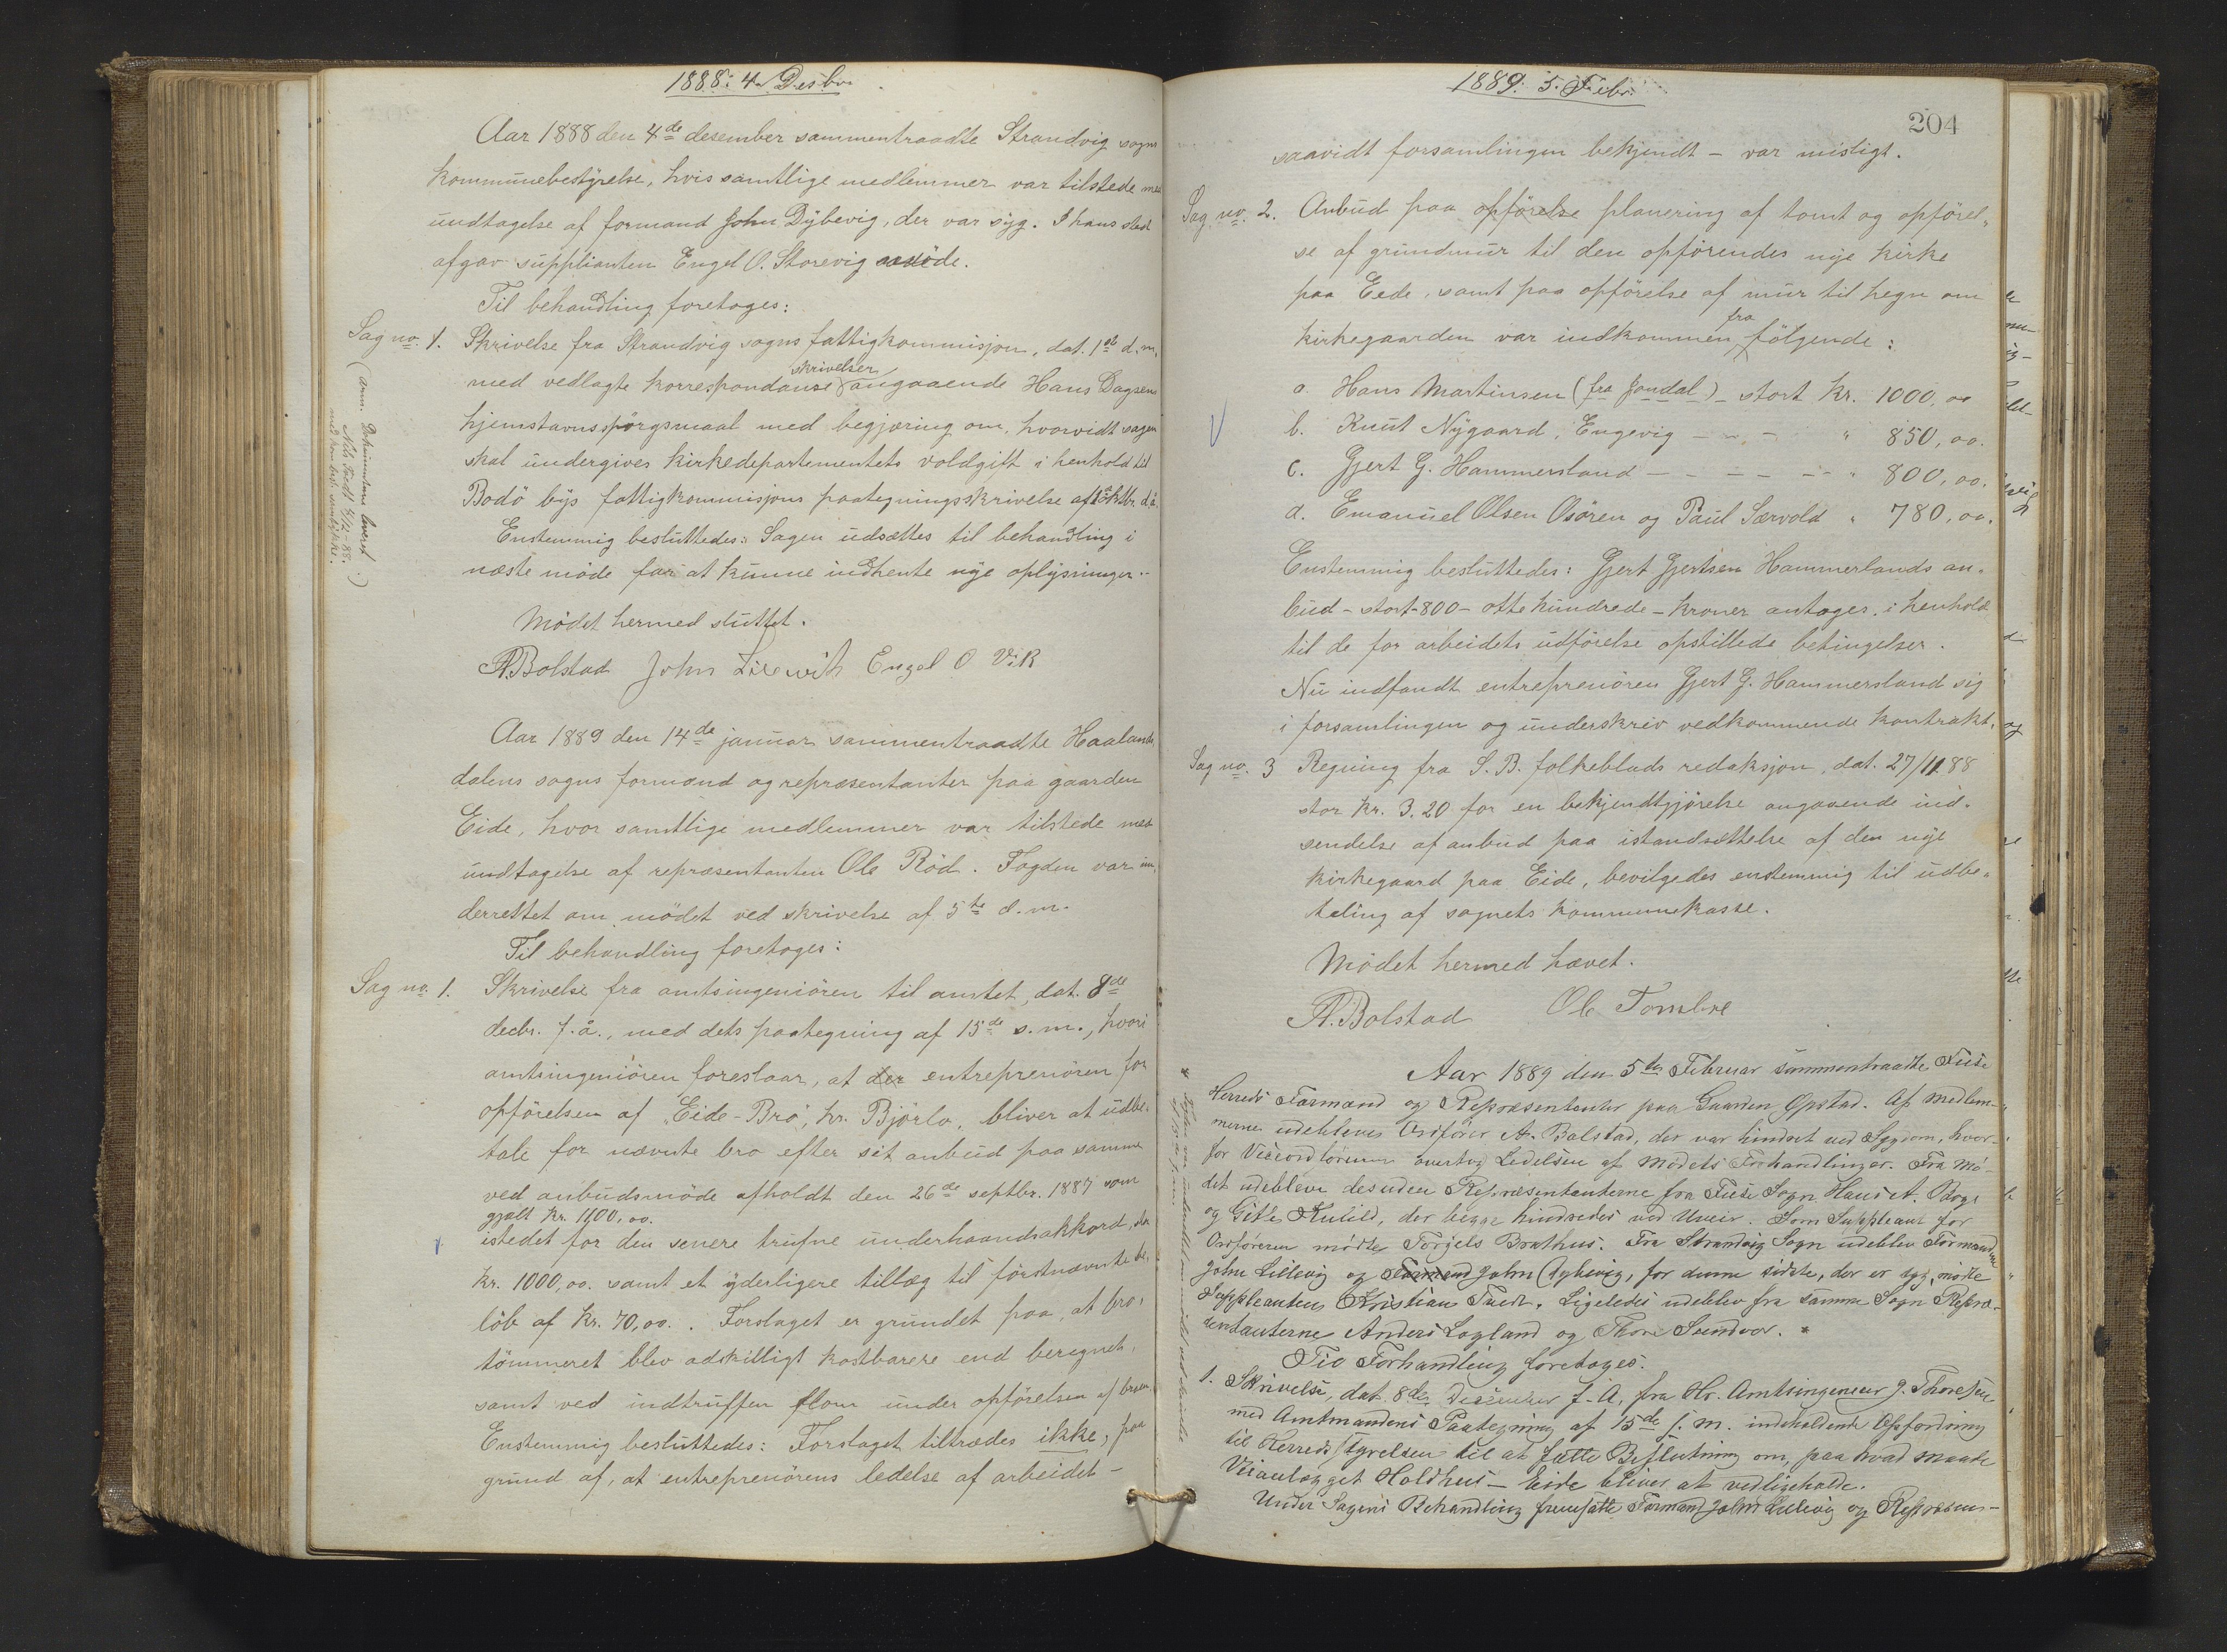 1888: 4. Desbr.
Aar 1888 den 4de desember sammentraadte Strandvig sogns
kommunebestyrelse, hvis samtlige medlemmer var tilstede med
undtagelse af formand John Dybevig, der var syg. I hans sted
afgav supplianten Engel O. Storevig møde.
Til behandling foretoges:
Sag no. 1. Skrivelse fra Strandvig sogns fattigkommisjon, dat. 1ste d. m.
skrivelser
med vedlagte korrespondanse angaaende Hans Dagsen
hjemstavnsspørgsmaal med begjæring om, hvorvidt sagen
skal undergives kirkedepartementets voldgift i henhold til
Bodö bys fattigkommisjons paategningsskrivelse af
Enstemmig besluttedes: Sagen udsættes til behandling i
næste møde for at kunne indhente nye oplysninger.
(Anm. Dokumentene leveret
Nils Tvedt 4/12-88.
Mödet hermed sluttet.
A. Bolstad John Lilewik Engel O Vik
Aar 1889 den 14de januar sammentraadte Haalands-
dalens sogns formænd og repræsentanter paa gaarden
Eide, hvor samtlige medlemmer var tilstede med
undtagelse af repræsentanten Ole Röd. Fogden var un-
derrettet om mödet ved skrivelse af 5te d. m.
Til behandling foretoges:
Sag no. 1. Skrivelse fra amtsingeniören til amtet, dat. 8de
decbr. f. å., med dets paategning af 15de s. m., hvori
amtsingeniören foreslaar, at der entreprenören for
opförelsen af "Eide-Bro", hr. Björlo, bliver at udbe-
tale for nævnte bro efter sit anbud paa samme
ved anbudsmöde afholdt den 26de septbr. 1887 som
gjalt kr. 1100,00.
istedet for den senere trufne underhaandsakkord, stor
kr. 1000,00. samt et yderligere tillæg til förstnævnte be-
löb af kr. 70,00. Forslaget er grundet paa, at bro-
tömmeret blev adskilligt kostbarere end beregnet,
samt ved indtruffen flom under opförelsen af broen.
Enstemmig besluttedes: Forslaget tiltrædes ikke, paa
grund af, at entreprenörens ledelse af arbeidet -
1889: 5. Febr.
204
saavidt forsamlingen bekjendt - var misligt.
Sag no. 2. Anbud paa opförelse planering af tomt og opförel-
se af grundmur til den opförendes nye kirke
paa Eede, samt paa opförelse af mur til hegn om
fra
kirkegaarden var indkommen følgende:
a. Hans Martinsen (fra Jondal) - stort kr. 1000,00
b. Knut Nygaard, Engevig - " - " 850,00.
c. Gjert G. Hammersland - - - - - " 800,00.
d. Emanuel Olsen Osören og Paul Særvold " 780,00.
Enstemmig besluttedes: Gjert Gjertsen Hammerlands an-
bud - stort 800 - otte hundrede - kroner antages i henhold
til de for arbeidets udførelse opstillede betingelser.
Nu indfandt entreprenören Gjert G. Hammersland sig
i forsamlingen og underskrev vedkommende kontrakt.
Sag no. 3 Regning fra S. B. folkeblads redaksjon, dat. 27/11 88
stor kr. 3.20 for en bekjendtgjörelse angaaende ind-
sendelse af anbud paa istandsættelse af den nye
kirkegaard paa Eide, bevilgedes enstemmig til udbe-
taling af sognets kommunekasse.
Mödet hermed hævet.
A. Bolstad Ole Tombre
Aar 1889 den 5te Februar sammentraadte Fuse
Herreds Formænd og Repræsentanter paa Gaarden Opstad. Af Medlem-
merne udeblev Ordfører A. Bolstad, der var hindret ved Sygdom, hvor-
for Viceordføreren overtog Ledelsen af Mødets Forhandlinger. Fra Mø-
det udeblev desuden Repræsentanterne fra Fuse Sogn Hans A. Berge
og Gitle Kulild, der begge hindredes ved Uveir. Som Suppleant for
Ordføreren mødte Torjels Brathus. Fra Strandvig Sogn udeblev Formændene
John Lillevig og Formand John Dybevig, for denne sidste, der er syg, mødte
Suppleanten Kristian Tvedt. Ligeledes udeblev fra samme Sogn Repræ-
sentanterne Anders Logland og Thore Sundvor. *
* Fogden var underrettet om mødet ved skrivelse
Til Forhandling foretoges:
1. Skrivelse, dat. 8de Desember f. A. fra Hr. Amtsingeneur J. Thoresen
med Amtmandens Paategning af 15de s. m. indeholdende Opfordring
til Herredsstyrelsen til at fatte Beslutning om, paa hvad Maade
Veianlægget Holdhus - Eide bliver at vedligeholde.
Under Sagens Behandling fremsatte Formand John Lillevig og Repræsen-